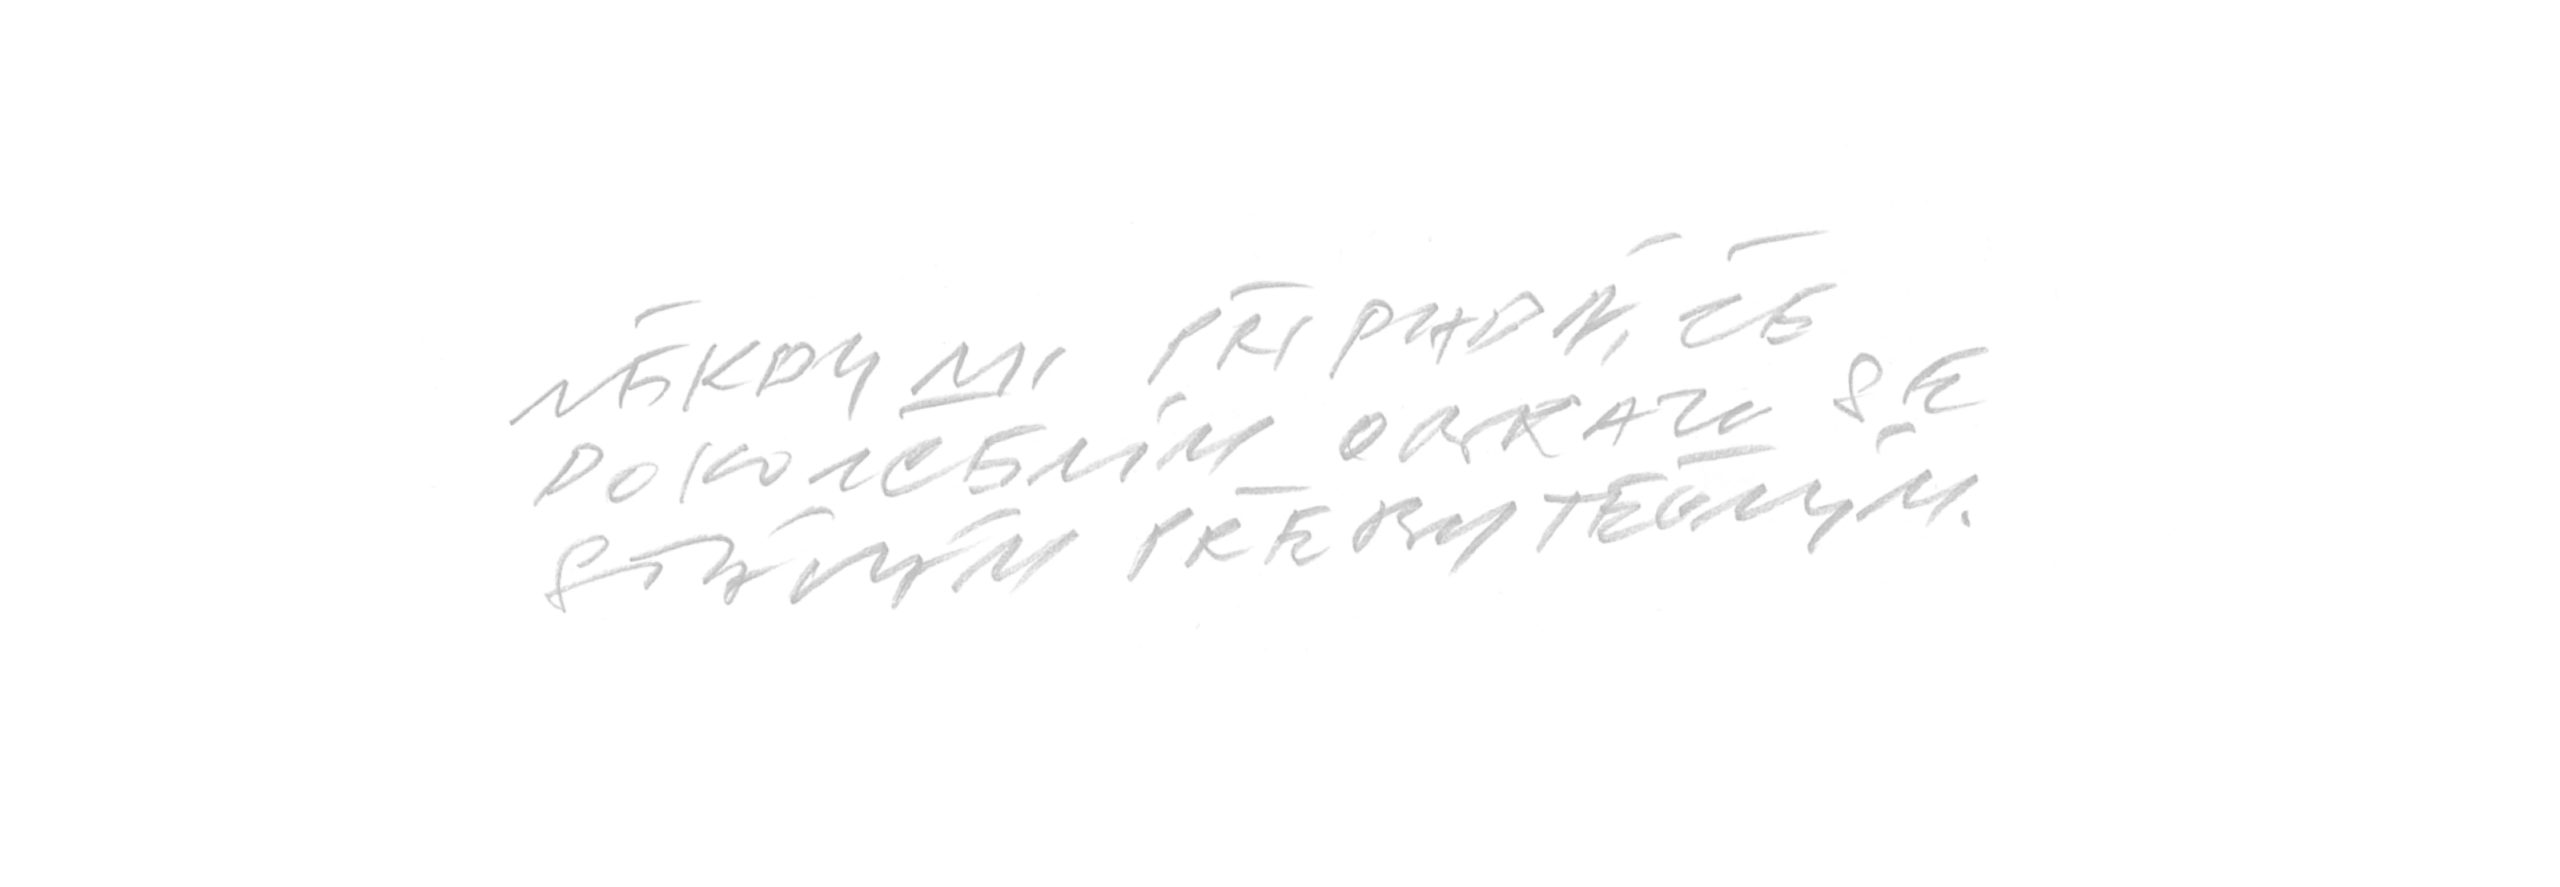 NĚKDY MI PŘIPADÁ, ŽE
DOKONČENÍM OBRAZU SE
STÁVÁM PŘEBYTEČNÝM.